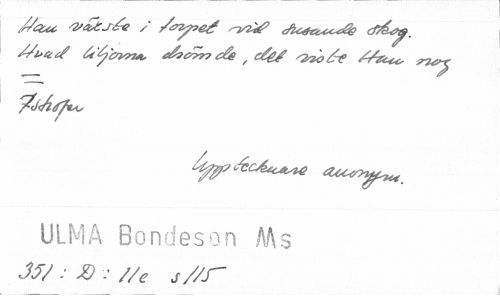 Han växte i torpet vid susande skog.
Hvad liljorna drömde, det visste Han nog
=
7 strofer
Upptecknare anonym.
ULMA Bondeson Ms
351 : D : 11e s 115